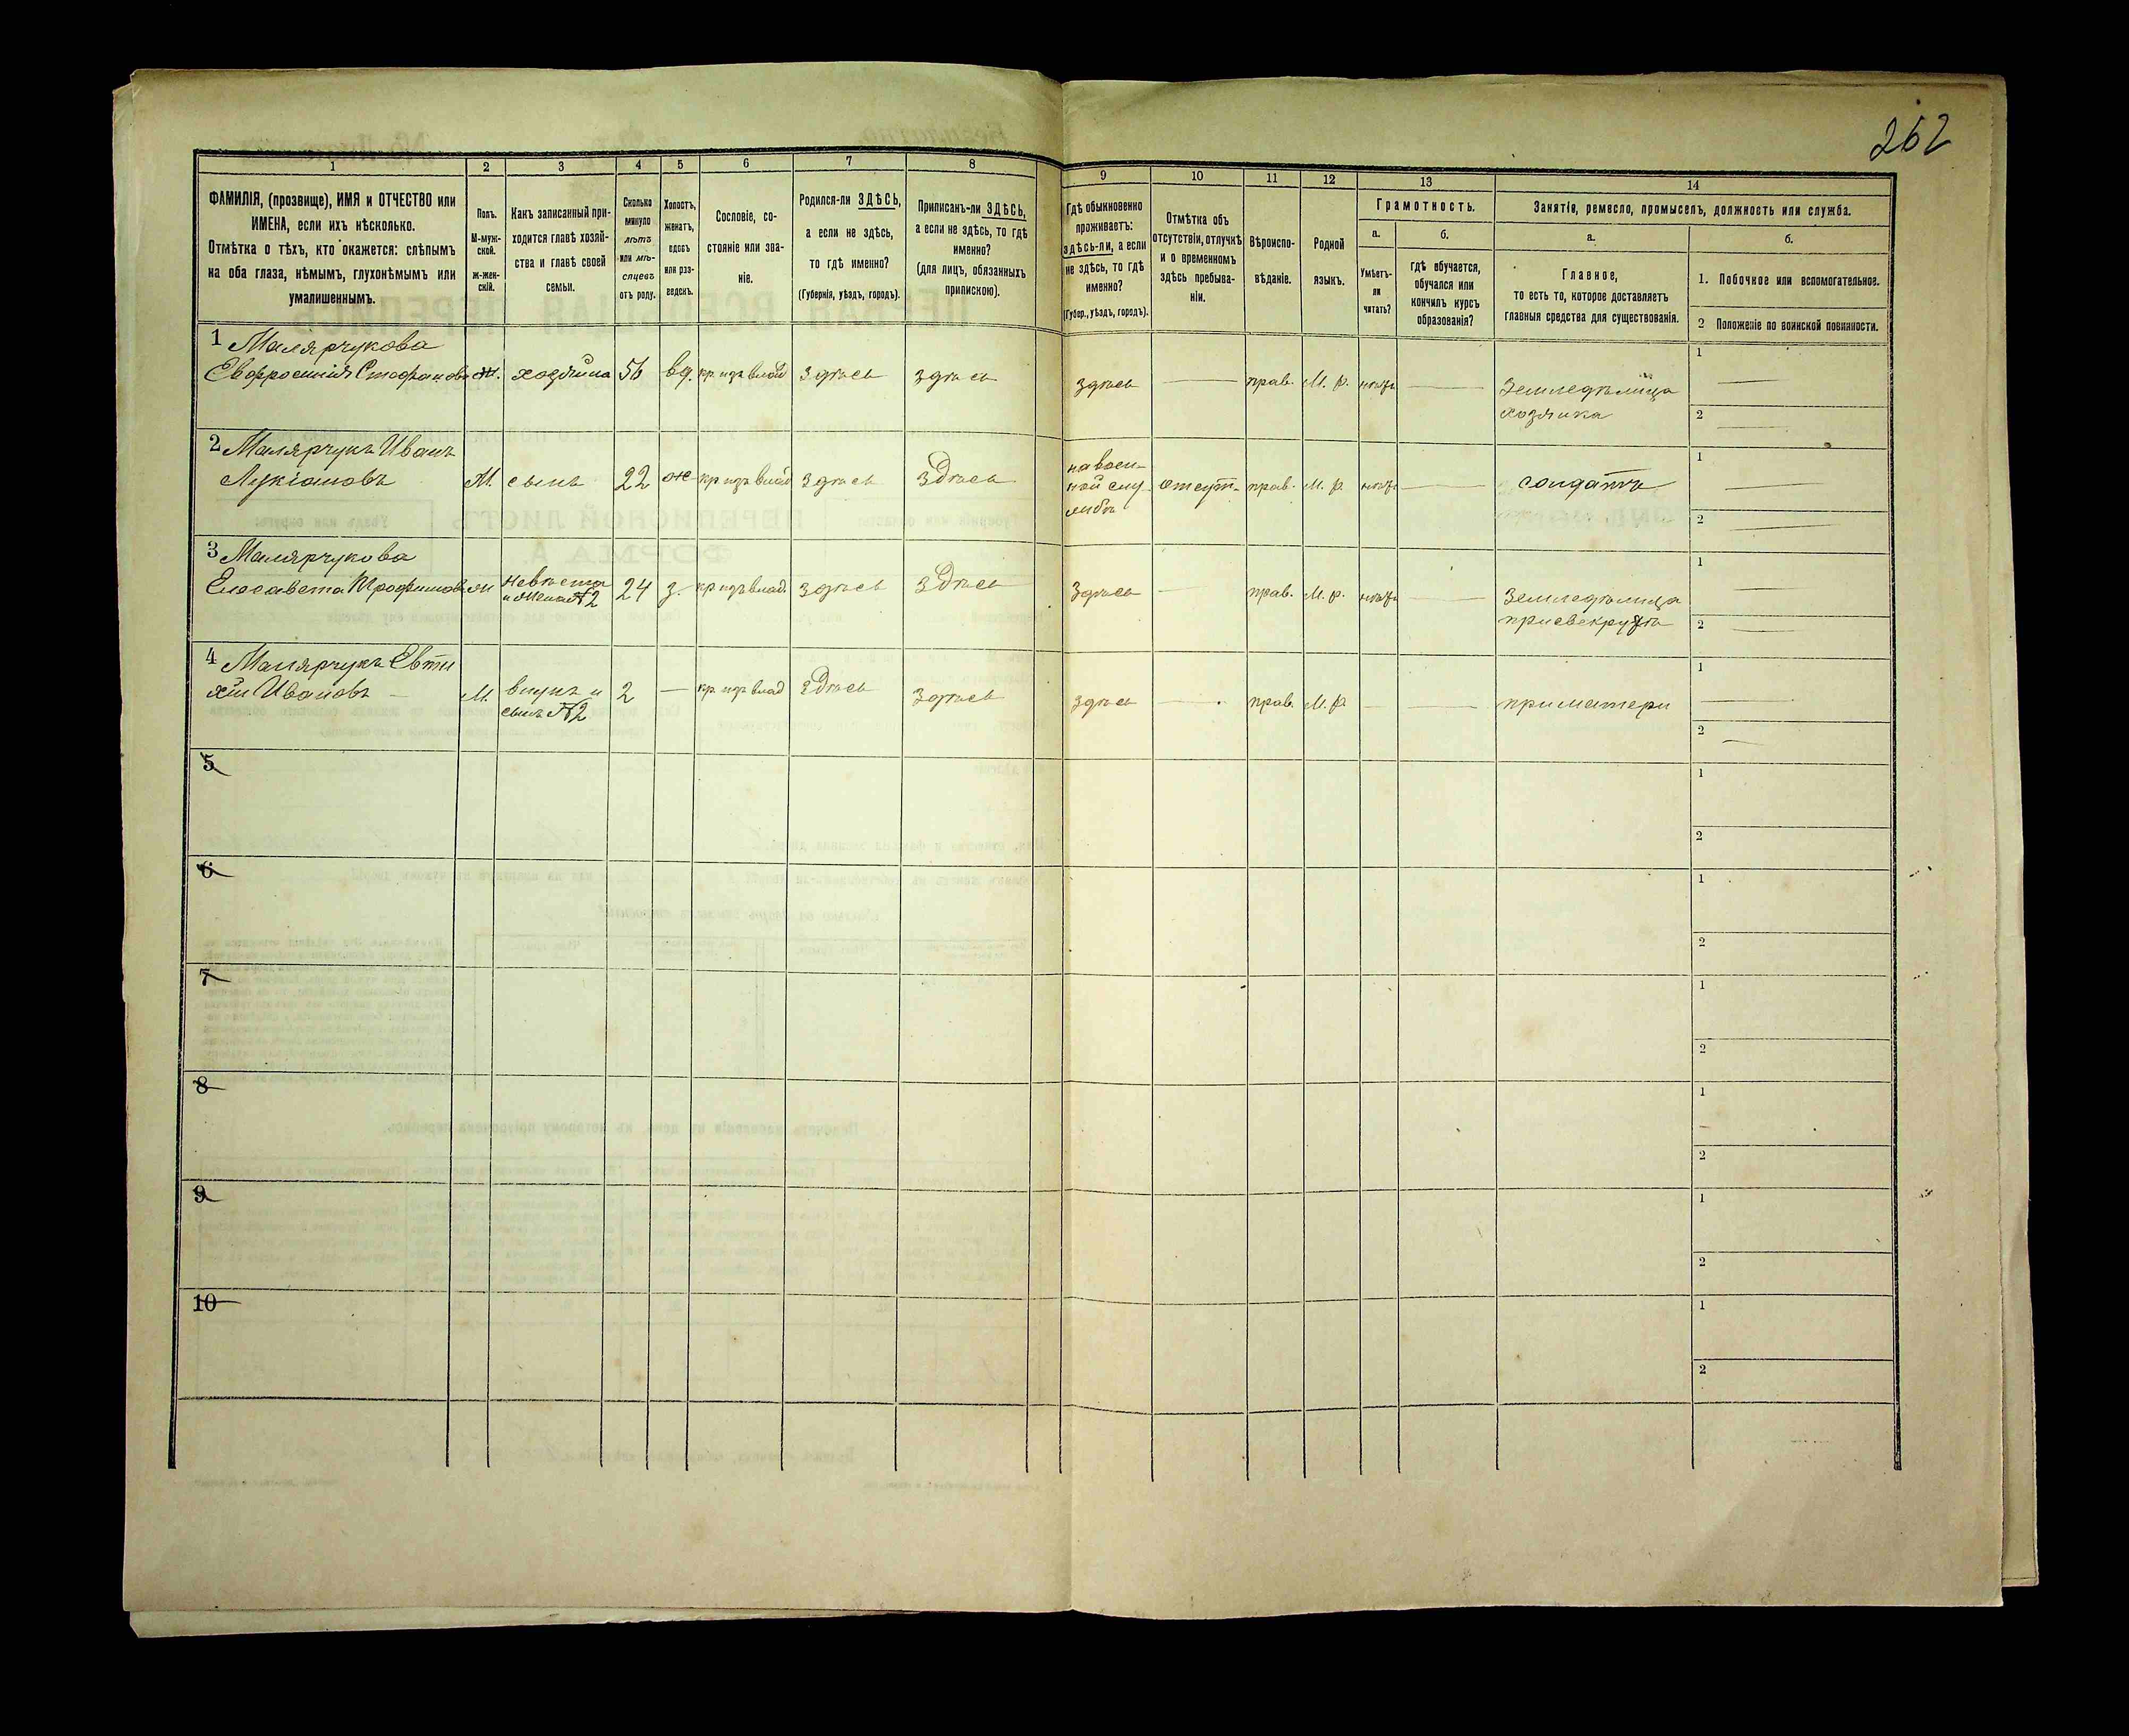 262
1 2 3 4 5 6 7 8 9 10 11 12 13 14
ФАМИЛІЯ, (прозвище), ИМЯ и ОТЧЕСТВО или
ИМЕНА, если ихъ нѣсколько.
Отмѣтка о тѣхъ, кто окажется: слѣпымъ
на оба глаза, нѣмымъ, глухонѣмымъ или
умалишеннымъ.
Полъ.
М-муж-
ской.
ж-жен-
скій.
Какъ записанный при-
ходится главѣ хозяй-
ства и главѣ своей
семьи.
Сколько
минуло
лѣтъ
или мѣ-
сяцевъ
отъ роду.
Холостъ,
женатъ,
вдовъ
или раз-
ведемъ.
Сословіе, со-
стояніе или зва-
ніе.
Родился-ли ЗДѢСЬ,
а если не здѣсь,
то гдѣ именно?
(Губернія, уѣздъ, городъ).
Приписанъ-ли ЗДѢСЬ,
а если не здѣсь, то гдѣ
именно?
(для лицъ, обязанныхъ
припискою).
Гдѣ обыкновенно
проживаетъ:
здѣсь-ли, а если
не здѣсь, то гдѣ
именно?
(Губер., уѣздъ, городъ).
Отмѣтка объ
отсутствіи, отлучкѣ
и о временномъ
здѣсь пребыва-
ніи.
Вѣроиспо-
вѣданіе.
Родной
языкъ.
Грамотность.
а.
Умѣетъ-
ли
читать?
б.
гдѣ обучается,
обучался или
кончилъ курсъ
образованія?
Занятіе, ремесло, промыселъ, должность или служба.
а.
Главное,
то есть то, которое доставляетъ
главныя средства для существованія.
б.
1. Побочное или вспомогательное.
2 Положеніе по воинской повинности.
1 Малярчукова
Евфросинія Стефанова ж. хозяйка 56 вд. кр изъ влад здѣсь здѣсь здѣсь — прав. М. р. нѣтъ — Земледѣлица
хозяйка
1 —
2 —
2 Малярчукъ Иванъ
Лукіановъ М. сынъ 22 ж кр изъ влад здѣсь здѣсь на воен-
ной слу
жбѣ
отсут. прав. М. р. нѣтъ — солдатъ
1 —
2 —
3 Малярчукова
Елисавета Трофимова ж невѣста
и жена №2
24 з. кр изъ влад. здѣсь здѣсь здѣсь — прав. М. р. нѣтъ — Земледѣлица
при свекрухѣ
1 —
2 —
4 Малярчукъ Евти
хій Ивановъ — М. внукъ и
сынъ №2
2 — кр изъ влад здѣсь здѣсь здѣсь — прав. М. р — — при матери
1 —
2 —
5
1
2
6
1
2
7
1
2
8
1
2
9
1
2
10
1
2